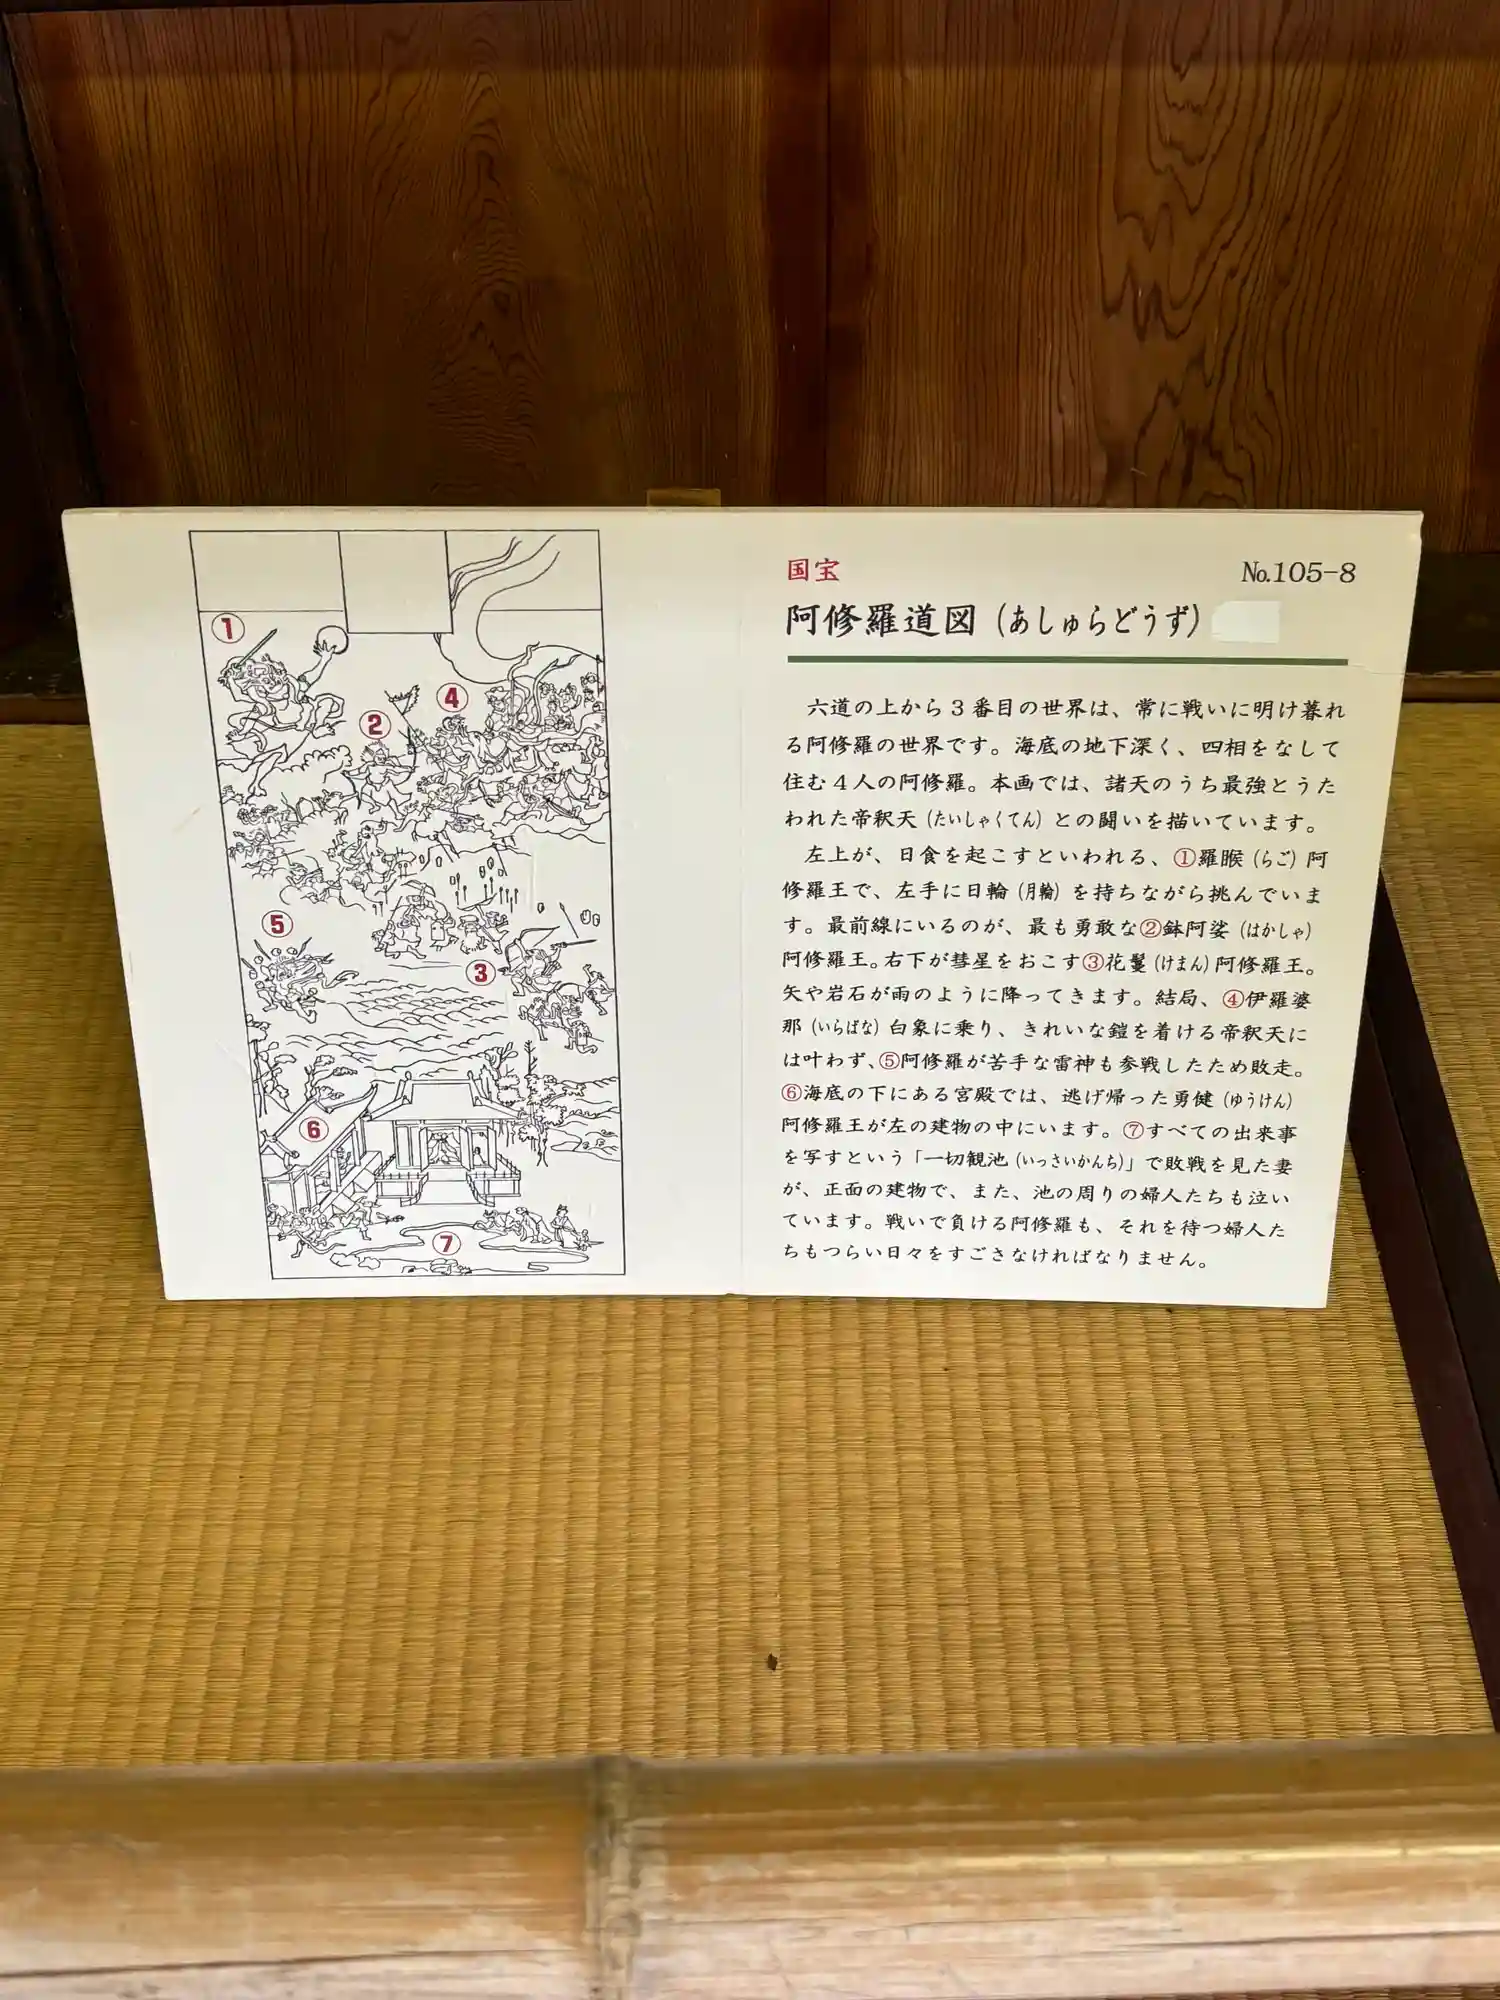 国宝
No.105-8
阿修羅道図（あしゅらどうず）
六道の上から3番目の世界は、常に戦いに明け暮れ
る阿修羅の世界です。海底の地下深く、四相をなして
住む4人の阿修羅。本画では、諸天のうち最強とうた
われた帝釈天（たいしゃくてん）との闘いを描いています。
左上が、日食を起こすといわれる、①羅睺（らご）阿
修羅王で、左手に日輪（月輪）を持ちながら挑んでいま
す。最前線にいるのが、最も勇敢な②鉢阿娑（はかしゃ）
阿修羅王。右下が彗星をおこす③花鬘（けまん）阿修羅王。
矢や岩石が雨のように降ってきます。結局、④伊羅婆
那（いらばな）白象に乗り、きれいな鎧を着ける帝釈天に
は叶わず、⑤阿修羅が苦手な雷神も参戦したため敗走。
⑥海底の下にある宮殿では、逃げ帰った勇健（ゆうけん）
阿修羅王が左の建物の中にいます。⑦すべての出来事
を写すという「一切観池（いっさいかんち）」で敗戦を見た妻
が、正面の建物で、また、池の周りの婦人たちも泣い
ています。戦いで負ける阿修羅も、それを待つ婦人た
ちもつらい日々をすごさなければなりません。
①
④
②
⑤
③
⑥
⑦